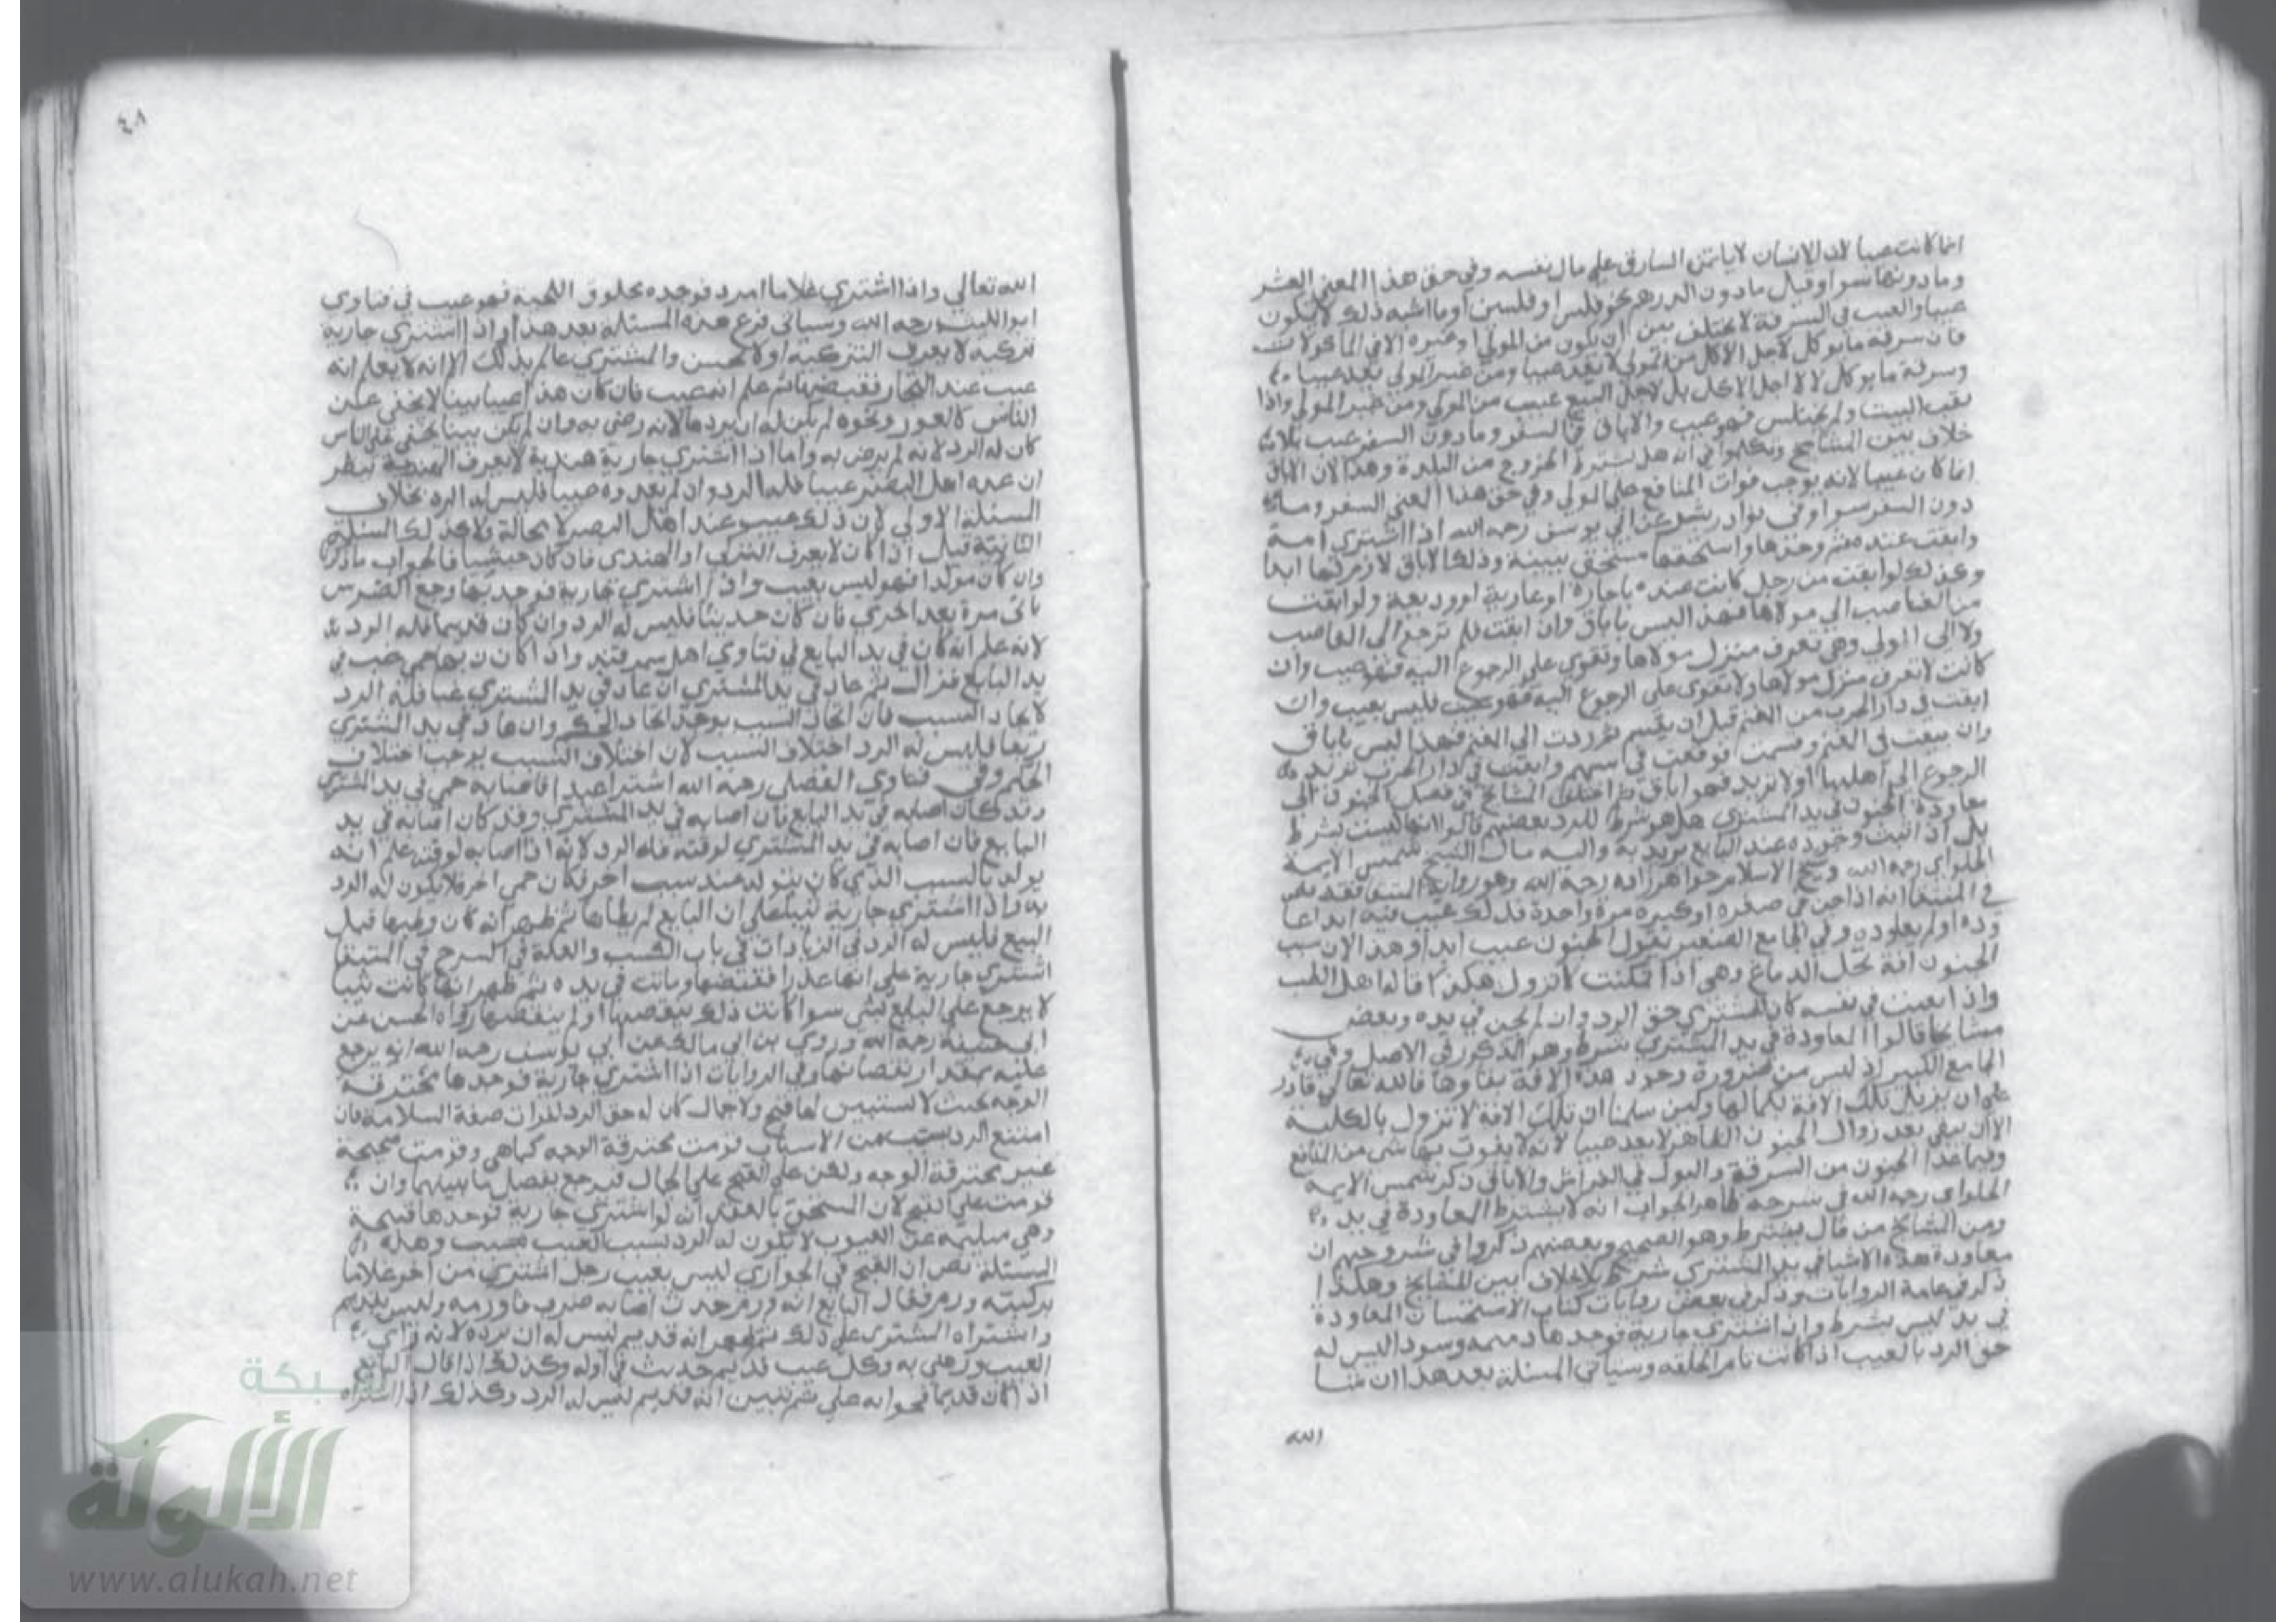 انما كانت عيبا لان الانسان لا ياتمن السارق علي مال نفسه وفي حق هذا المعني العشر
وما دونها سوا وقيل ما دون الدرهم نحو فلس او فلسين او ما اشبه ذلك لا يكون
عيبا والعيب في السرقة لا يختلف بين ان يكون من المولي او غيره الا في الماكولات
فان سرقة ما يوكل لاجل الاكل من المولي لا يعد عيبا ومن غير المولي يعد عيبا
وسرقة ما يوكل لا لاجل الاكل بل لاجل البيع عيب من المولي ومن غير المولي واذا
نقب البيت ولم يختلس فهو عيب والاباق ما دون السفر عيب بلا
خلاف بين المشايخ وتكلموا في انه هل يشترط الخروج من البلدة وهذا لان الاباق
انما كان عيبا لانه يوجب فوات المنافع علي المولي وفي حق هذا المعني السفر وما
دون السفر سوا وفي نوادر بشر عن ابي يوسف رحمه الله اذا اشتري امة
وابقت عنده ثم وجدها واستحقها مستحق ببينة وذلك الاباق لازم لها ابدا
وكذلك لو ابقت من رجل كانت عنده باجارة او عارية او وديعة ولو ابقت
من الغاصب الي مولاها فهذا ليس باباق وان ابقت فلم ترجع الي الغاصب
ولا الي المولي وهي تعرف منزل مولاها وتقوي علي الرجوع اليه فهو عيب وان
كانت لا تعرف منزل مولاها ولا تقوي علي الرجوع اليه فليس بعيب وان
ابقت في دار الحرب من المغنم قبل ان يقسم ثم ردت الي المغنم فهذا ليس باباق
وان بيعت في المغنم وقسمت فوقعت في سهم وابقت في دار الحرب تريد
الرجوع الي اهلها او لا تريد فهو اباق ثم اختلف المشايخ في فصل الجنون ان
معاودة الجنون في يد المشتري هل هو شرط للرد بعضهم قالوا انها ليست بشرط
بل اذا ثبت وجوده عند البايع يرد به واليه مال الشيخ شمس الايمة
الحلواي رحمه الله وشيخ الاسلام خواهر زاده رحمه الله وهو رواية المنتقا فقد نص
في المنتقا انه اذا جن في صغره او كبره مرة واحدة فذلك عيب فيه ابدا
اولم يعاوده وفي الجامع الصغير يقول الجنون عيب ابدا وهذا لان سبب
الجنون افة تحل الدماغ وهي اذا تمكنت لا تزول هكذا قاله اهل الطب
كان للمشتري حق الرد وان لم يجن في يده وبعض
مشايخنا قالوا المعاودة في يد المشتري شرط وهو المذكور في الاصل وفي
الجامع الكبير اذ ليس من ضرورة وجود هذه الافة بقاوها فالله تعالي قادر
علي ان يزيل تلك الافة بكمالها ولئن سلمنا ان تلك الافة لا تزول بالكلية
الا ان بعد زوال الجنون الظاهر لا يعد عيبا لانه لا يفوت بها شي من المنافع
وفيما عدا الجنون من السرقة والبول في الفراش والاباق ذكر شمس الايمة
الحلواي رحمه الله في شرحه ظاهر الجواب انه لا يشترط المعاودة في يد
ومن المشايخ من قال يشترط وهو الصحيح وبعضهم ذكروا في شروحهم ان
معاودة هذه الاشيا في يد المشتري شرط بلا خلاف بين المشايخ وهكذا
ذكر في عامة الروايات وذكر في بعض روايات كتاب الاستحسان المعاودة
في يد ليس بشرط واذا اشتري جارية فوجدها دميمة وسودا ليس له
حق الرد بالعيب اذا كانت تامة الخلقة وسياتي المسئلة بعد هذا ان شا
الله
٤٠٨
الله تعالي واذا اشتري غلاما امرد فوجده محلوق اللحية فهو عيب في فتاوي
ابو الليث رحمه الله وسياتي فرع هذه المسئلة بعد هذا واذا اشتري جارية
تركية لا يعرف التركية اولا تحسن والمشتري عالم بذلك الا انه لا يعلم انه
عيب عند التجار فقبضها ثم علم انه عيب فان كان هذا عيبا بينا لا يخفي علي
الناس كالعور ونحوه لم يكن له ان يردها لانه رضي به وان لم يكن بينا يخفي علي الناس
كان له الرد لانه لم يرض به واما اذا اشتري جارية هندية لا يعرف الهندية ينظر
ان عده اهل البصر عيبا فله الرد وان لم يعدوه عيبا فليس له الرد بخلاف
المسئلة الاولي لان ذلك عيب عند اهل البصر لا محالة ولا كذلك المسئلة
الثانية قيل اذا كان لا يعرف التركي او الهندي فان كان حبشيا فالجواب ما ذكرنا
وان كان مولدا فهو ليس بعيب واذا اشتري جارية فوجد بها وجع الضرس
ياتي مرة بعد اخري فان كان حديثا فليس له الرد وان كان قديما فله الرد
لانه علم انه كان في يد البايع في فتاوي اهل سمرقند واذا كان بها حمي غب في
يد البايع فزال ثم عاد في يد المشتري ان عاد في يد المشتري غبا فله الرد
لاتحاد السبب فان اتحاد السبب يوجب اتحاد الحكم وان عاد في يد المشتري
ربعا فليس له الرد اختلاف السبب لان اختلاف السبب يوجب اختلاف
الحكم وفي فتاوي الفضلي رحمه الله اشترا عبدا فاصابه حمي في يد المشتري
وقد كان اصابه في يد البايع فان اصابه في يد المشتري وقد كان اصابه في يد
البايع فان اصابه في يد المشتري لوقته فله الرد لانه اذا اصابه لوقته علم انه
يولد بالسبب الذي كان يتولد عند سبب اخر فكان حمي اخر فلا يكون له الرد
به واذا اشتري جارية ثيبا علي ان البايع لم يطاها ثم ظهر انه كان وطيها قبل
البيع فليس له الرد في الزيادات في باب النسب والعلة في الشرح في المنتقا
اشتري جارية علي انها عذرا فقبضها وماتت في يده ثم ظهر انها كانت ثيبا
لا يرجع علي البايع بشي سوا كانت ذلك ينقصها او لم ينقصها رواه الحسن عن
ابي حنيفة رحمه الله وروي بن ابي مالك عن ابي يوسف رحمه الله انه يرجع
عليه بمقدار نقصانها وفي الروايات اذا اشتري جارية فوجدها محترقة
الوجه بحيث لا يستبين لها قبح ولا جمال كان له حق الرد لفوات صفة السلامة فان
امتنع الرد بسبب من الاسباب قومت محترقة الوجه كما هي وقومت صحيحة
غير محترقة الوجه ولكن علي القبح علي الجمال فيرجع بفضل ما بينهما وان
قومت علي القبح لان المستحق بالعقد انه لو اشتري جارية فوجدها قبيحة
وهي سليمة عن العيوب لا يكون له الرد بسبب العيب وهذه
المسئلة نص ان القبح في الجواري ليس بعيب رجل اشتري من اخر غلاما
بركبته ورم فقال البايع انه ورم حدث اصابه ضرب فاورمه وليس بقديم
واشتراه المشتري علي ذلك ثم ظهر انه قديم ليس له ان يرده لانه راي
العيب ورضي به وكل عيب قديم حديث في اوله وكذلك اذا قال البايع
اذا كان قديما فجوابه علي ثم تبين انه قديم ليس له الرد وكذلك اذا اشتراه
شبكة
الألوكة
www.alukah.net